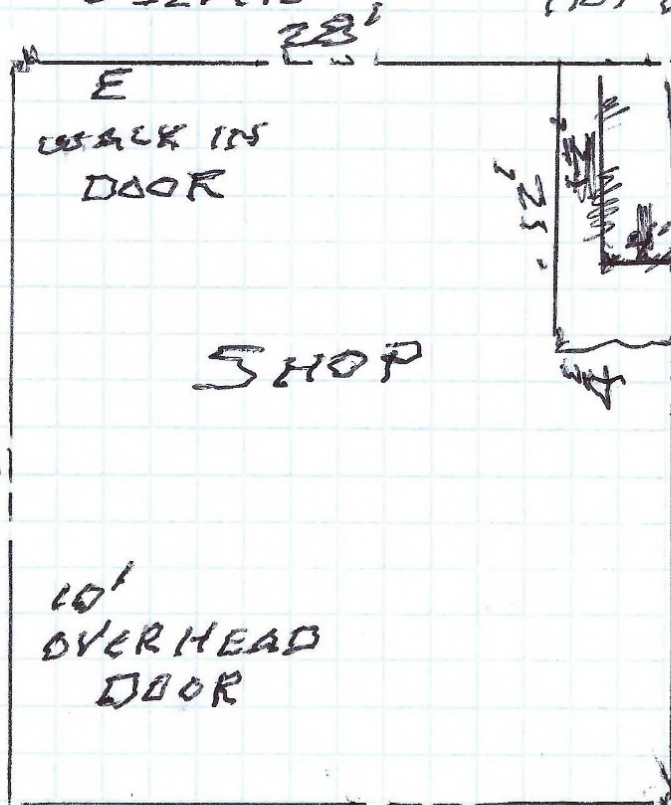 28'
E
WALK IN
DOOR
12'
SHOP
10'
OVERHEAD
DOOR